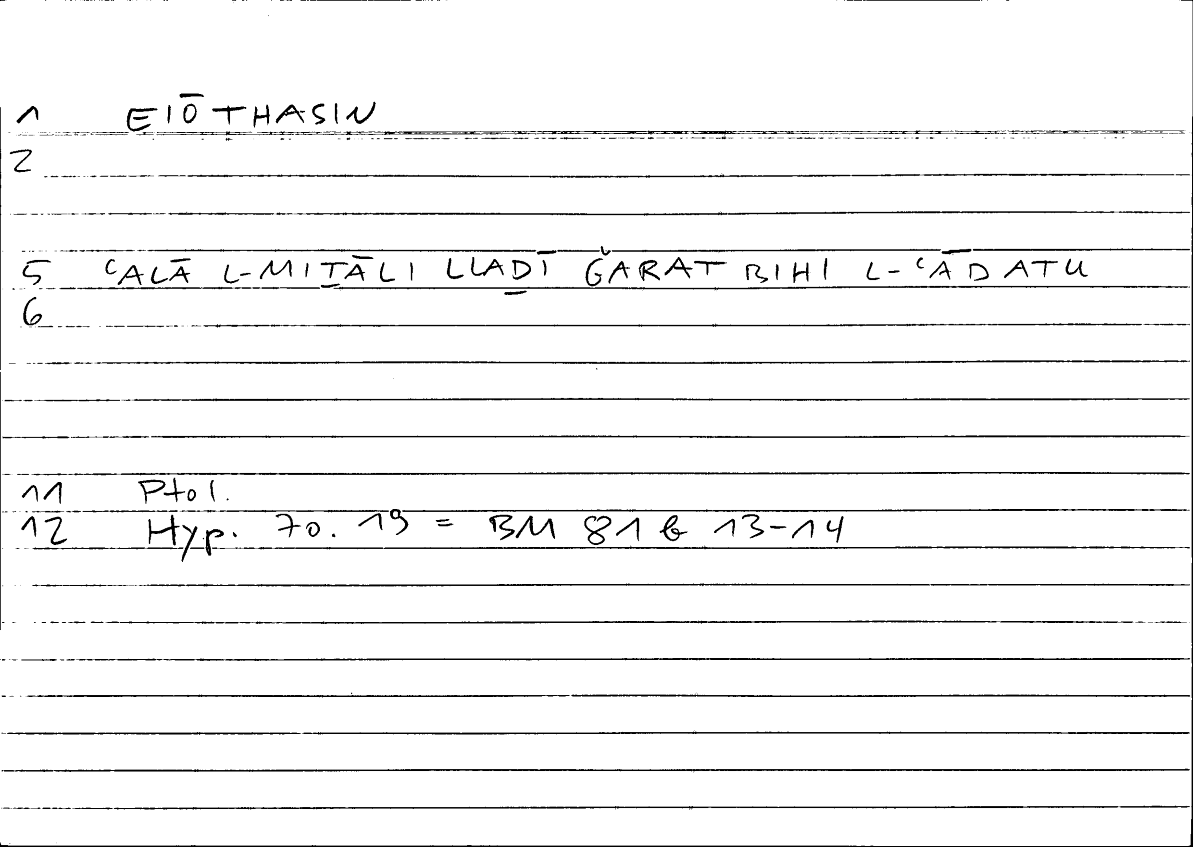 1 EIŌTHASIN
2
5 ʿALĀ L-MIṮĀLI LLAḎĪ ǦARAT BIHI L-ʿĀDATU
6
11 Ptol.
12 Hyp. 70. 19 = BM 81 b 13-14